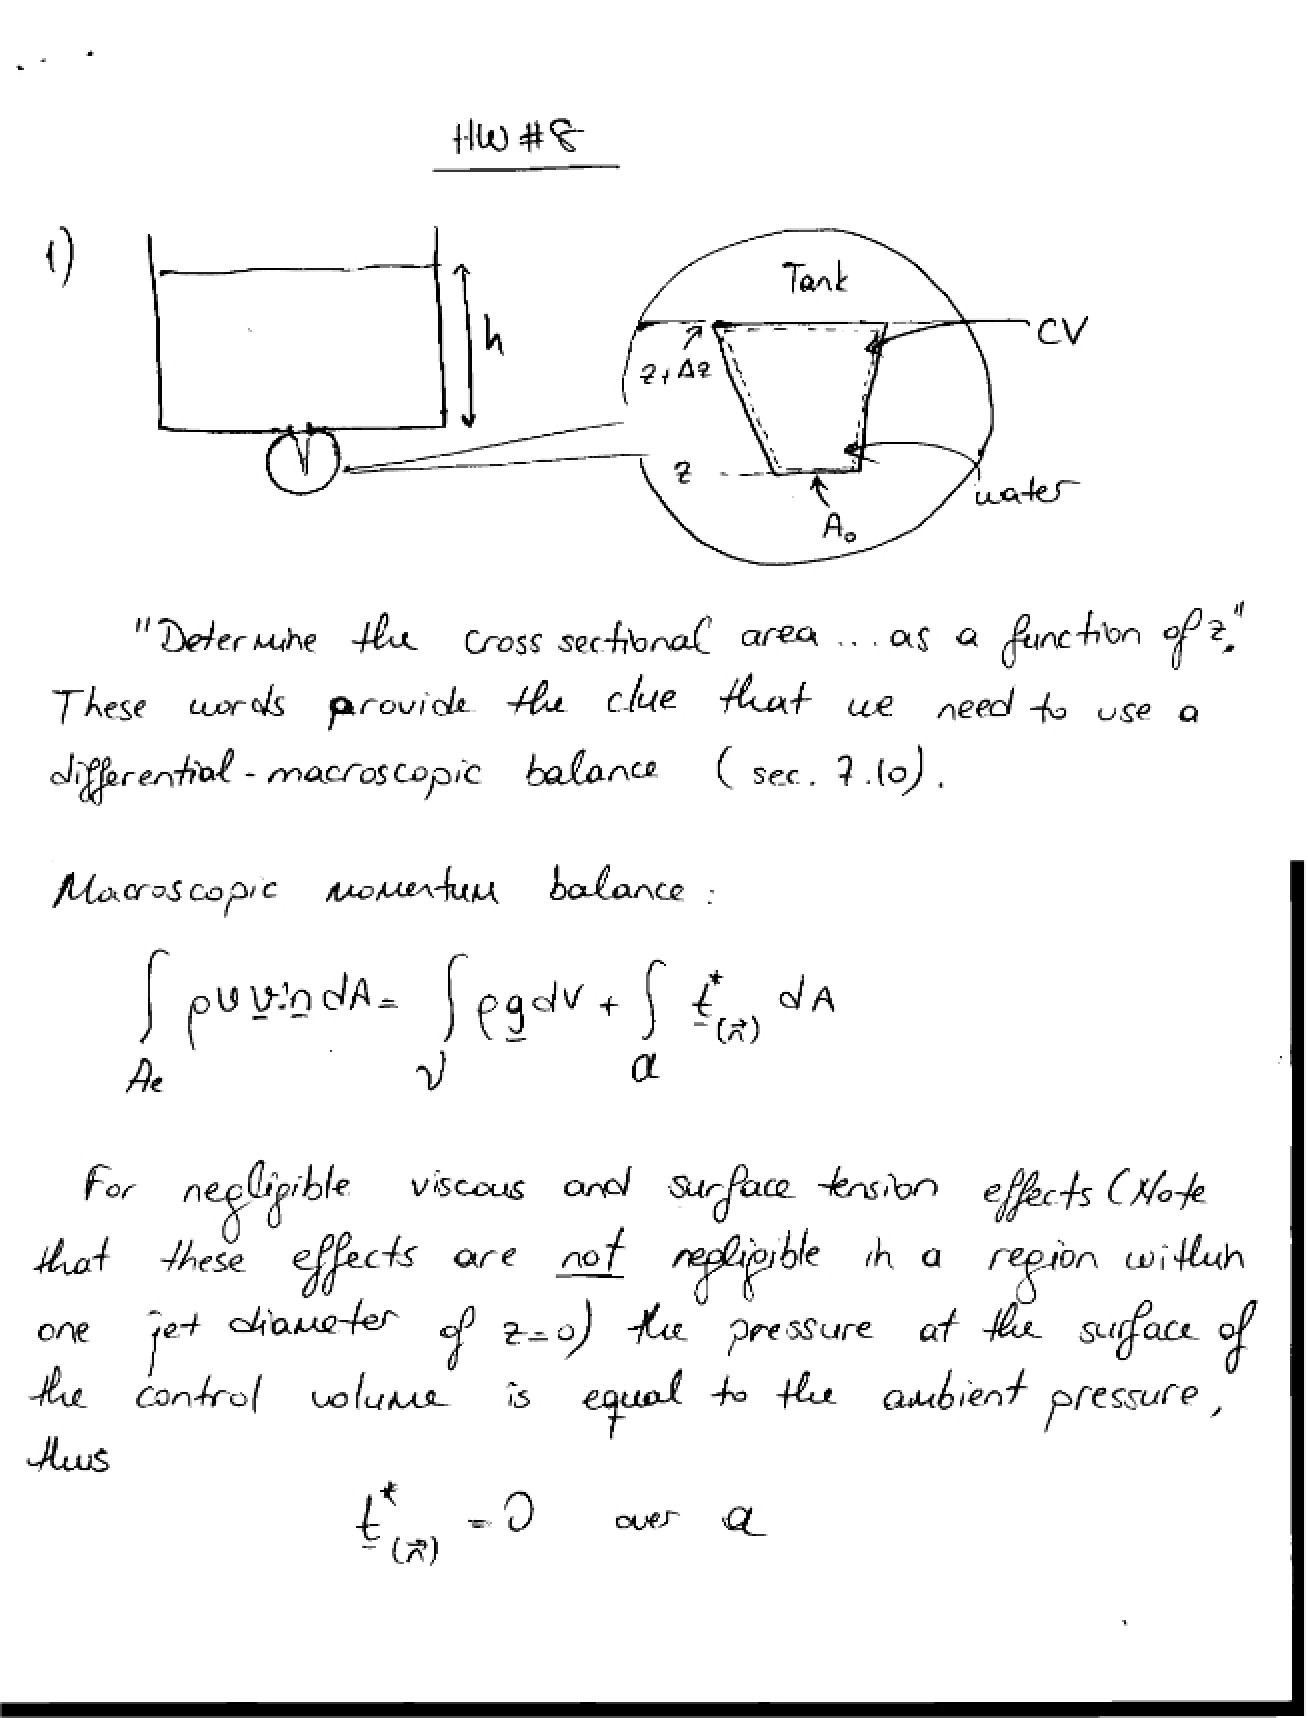 HW #8
1)
h
Tank
CV
z+Δz
z
A₀
water
"Determine the cross sectional area ... as a function of z."
These words provide the clue that we need to use a
differential-macroscopic balance (sec. 7.10).
Macroscopic momentum balance:
∫_{Ae} ρv v·n dA = ∫_V ρg dV + ∫_a t*_(n) dA
For negligible viscous and surface tension effects (Note
that these effects are not negligible in a region within
one jet diameter of z=0) the pressure at the surface of
the control volume is equal to the ambient pressure,
thus
t*_(n) = 0 over a